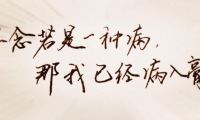 念若是一种病，
那我已经病入膏